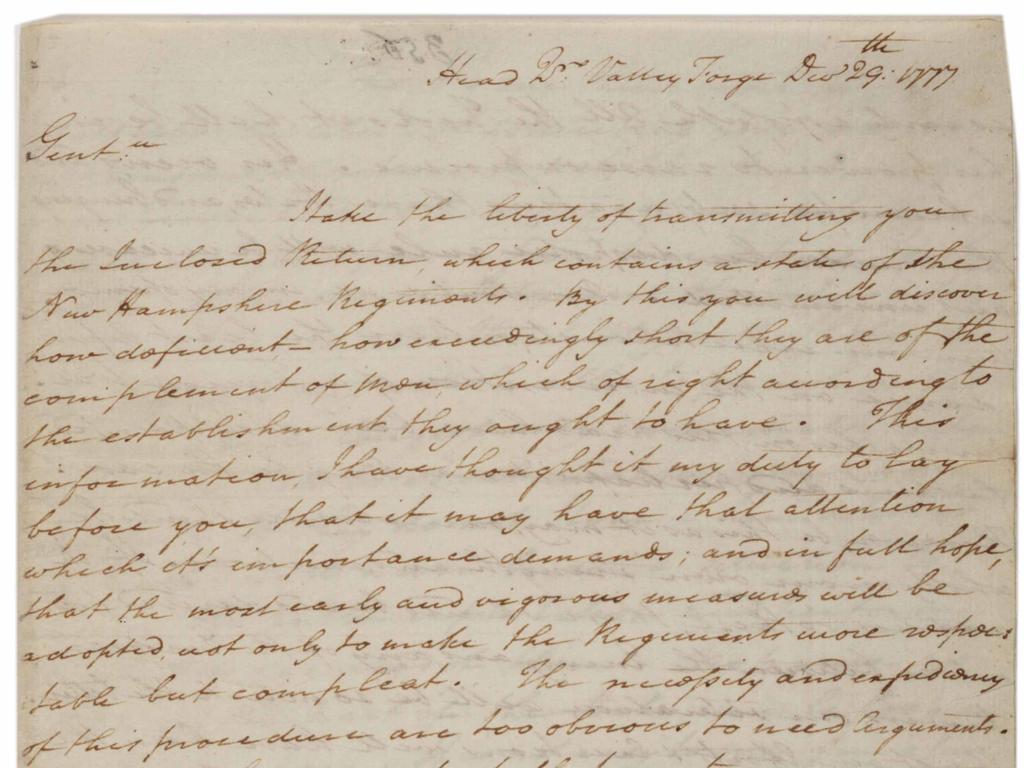 Head Qrs Valley Forge Decr 29th: 1777
Gentn
I take the liberty of transmitting you
the Inclosed Return, which contains a state of the
New Hampshire Regiments. By this you will discover
how deficient – how exceedingly short they are of the
complement of men, which of right according to
the establishment they ought to have. This
information, I have thought it my duty to lay
before you, that it may have that attention
which it's importance demands; and in full hope,
that the most early and vigorous measures will be
adopted, not only to make the Regiments more respec:
table but compleat. The necessity and expediency
of this procedure are too obvious to need Arguments.